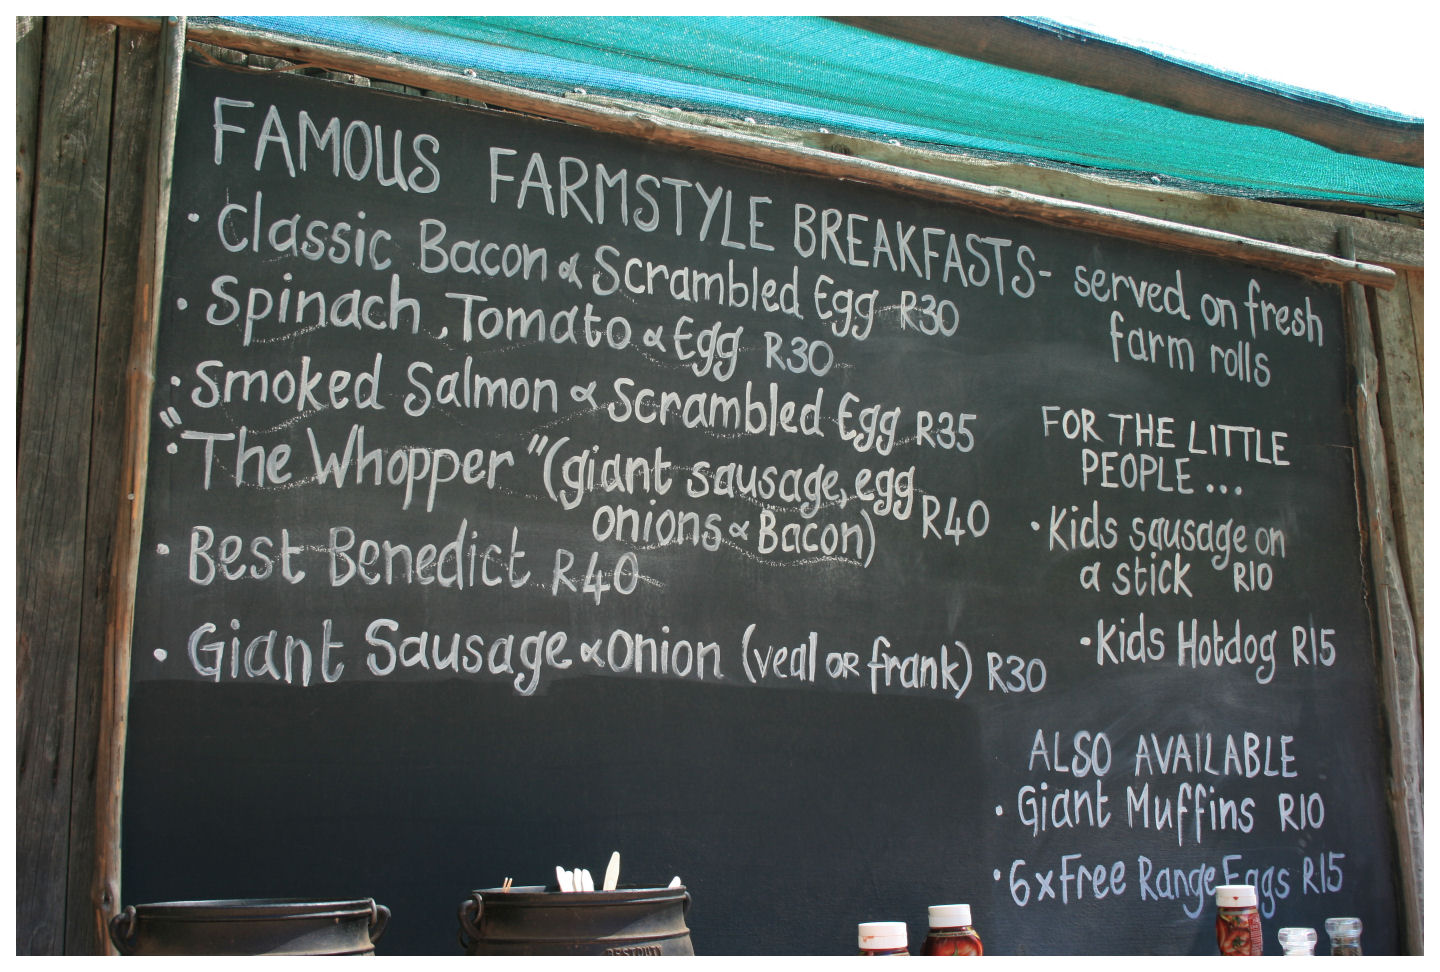 FAMOUS FARMSTYLE BREAKFASTS- served on fresh
farm rolls
· Classic Bacon & Scrambled Egg R30
· Spinach, Tomato & Egg R30
· Smoked Salmon & Scrambled Egg R35
· "The Whopper" (giant sausage, egg
onions & Bacon) R40
· Best Benedict R40
· Giant Sausage & Onion (veal OR frank) R30
FOR THE LITTLE
PEOPLE ...
· Kids sausage on
a stick R10
· Kids Hotdog R15
ALSO AVAILABLE
· Giant Muffins R10
· 6 x Free Range Eggs R15